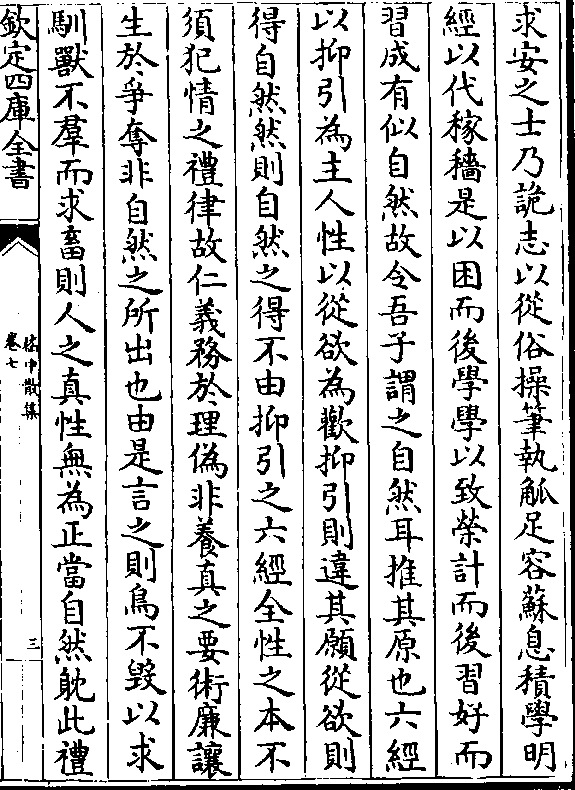 求安之士乃詭志以從俗操筆執觚足容蘇息積學明
經以代稼穡是以困而後學學以致榮計而後習好而
習成有似自然故令吾子謂之自然耳推其原也六經
以抑引為主人性以從欲為歡抑引則違其願從欲則
得自然然則自然之得不由抑引之六經全性之本不
須犯情之禮律故仁義務於理偽非養真之要術廉讓
生於爭奪非自然之所出也由是言之則鳥不毀以求
馴獸不羣而求畜則人之真性無為正當自然耽此禮
欽定四庫全書
嵇中散集
卷七
三